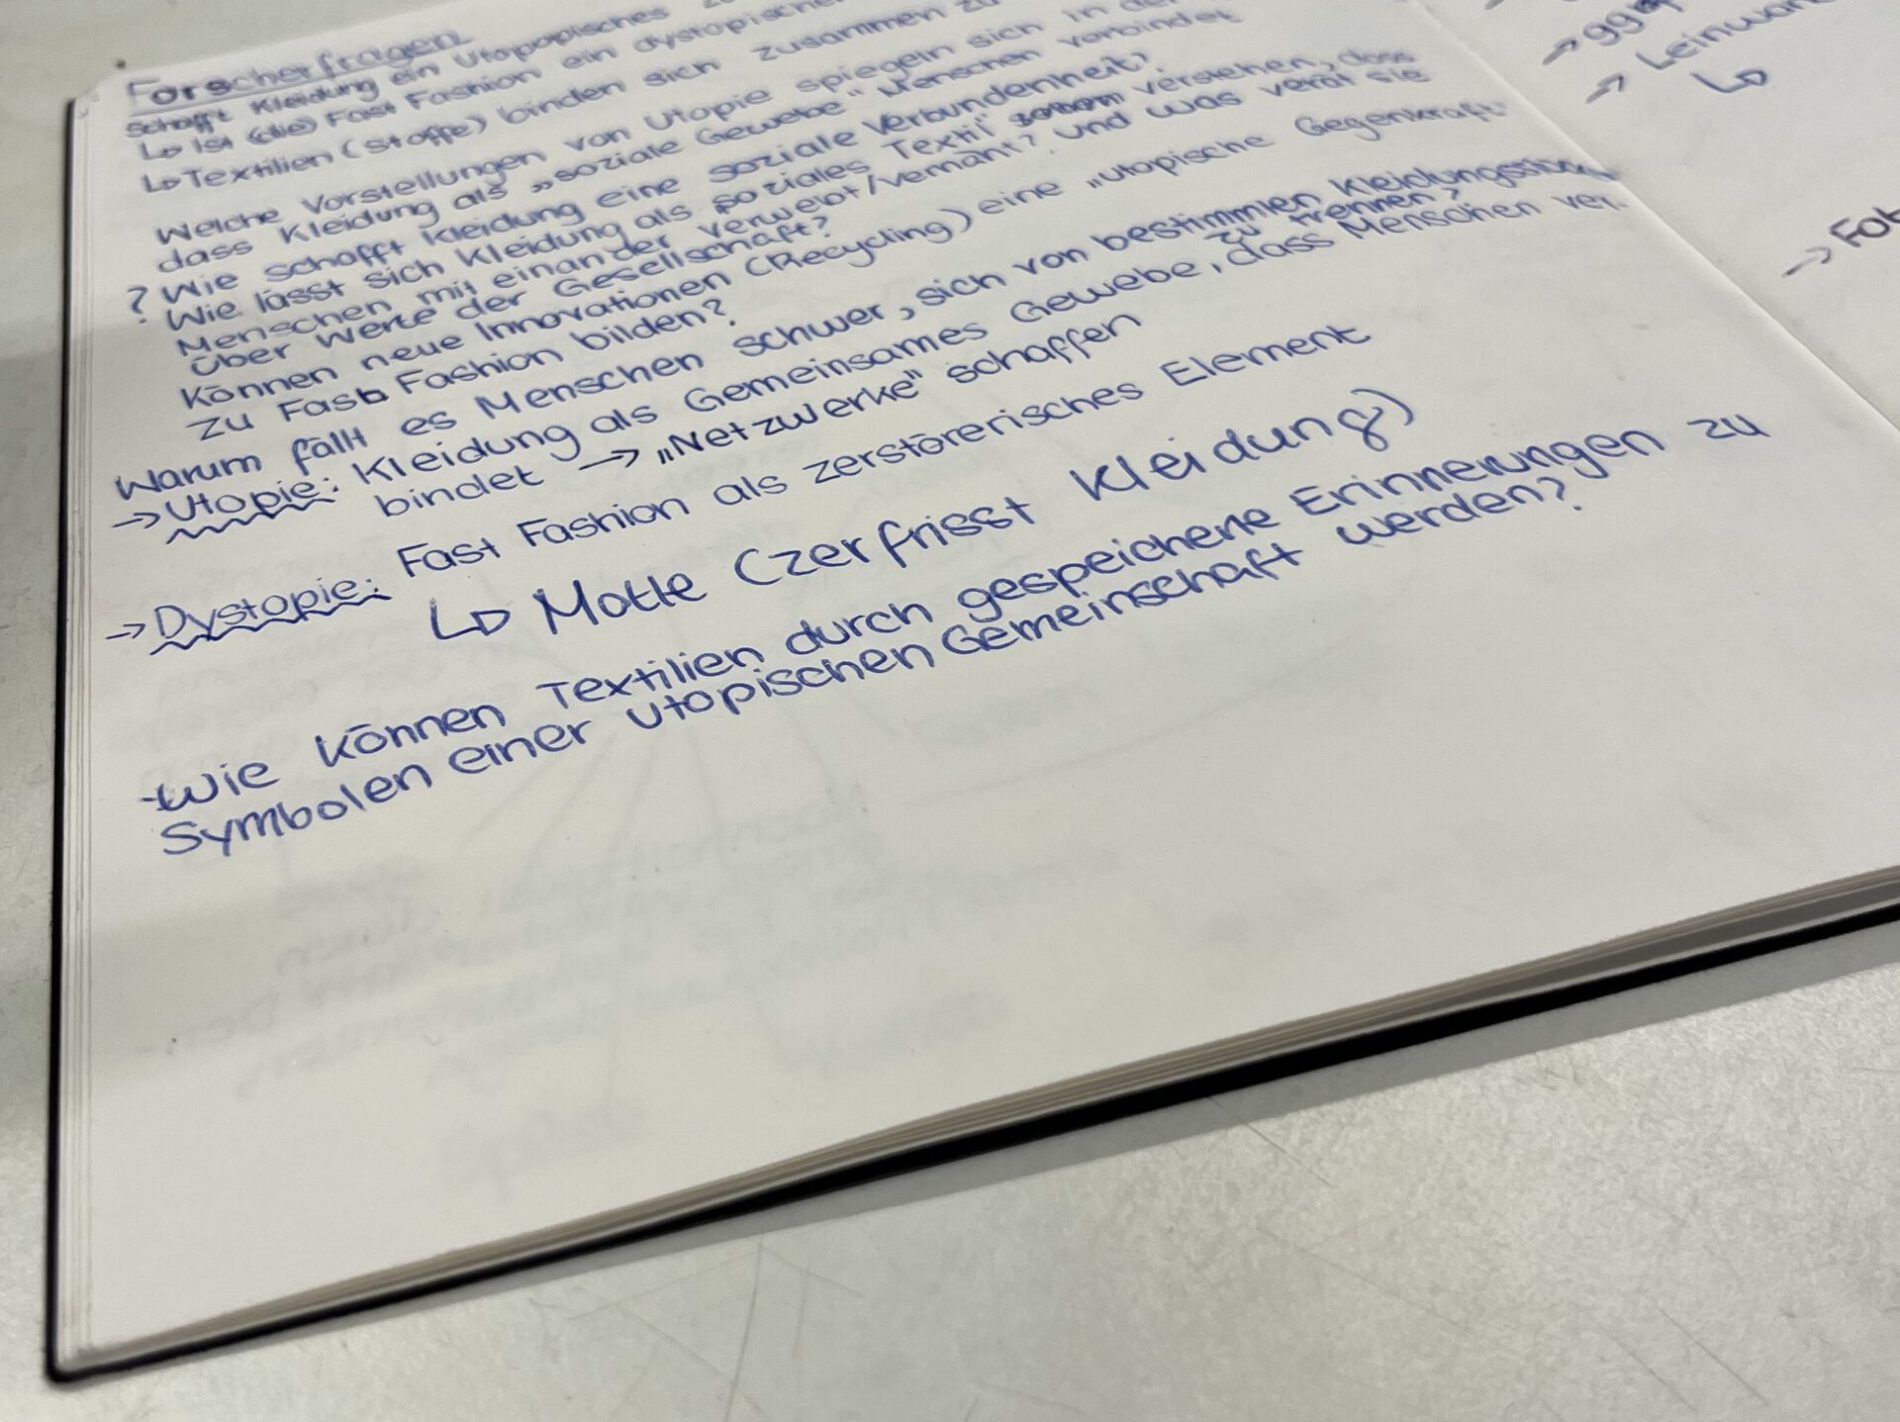 Forscherfragen
Schafft Kleidung ein Utopopisches
↳ Ist (die) Fast Fashion ein dystopischer
↳ Textilien (Stoffe) binden sich zusammen zu
Welche Vorstellungen von Utopie spiegeln sich in der
dass Kleidung als „soziale Gewebe" Menschen verbindet
? Wie schafft Kleidung eine soziale Verbundenheit?
Wie lässt sich Kleidung als soziales Textil verstehen, dass
Menschen mit einander verwebt/vernäht? und was verät sie
über Werte der Gesellschaft?
Können neue Innovationen (Recycling) eine „utopische Gegenkraft"
zu Fast Fashion bilden?
Warum fällt es Menschen schwer, sich von bestimmten Kleidungsstücken
zu trennen?
→ Utopie: Kleidung als Gemeinsames Gewebe, dass Menschen ver-
bindet → „Netzwerke" schaffen
→ Dystopie: Fast Fashion als zerstörerisches Element
↳ Motte (zerfrisst Kleidung)
- Wie können Textilien durch gespeicherte Erinnerungen zu
Symbolen einer utopischen Gemeinschaft werden?
→
→ Leinwan
↳
→ Fot